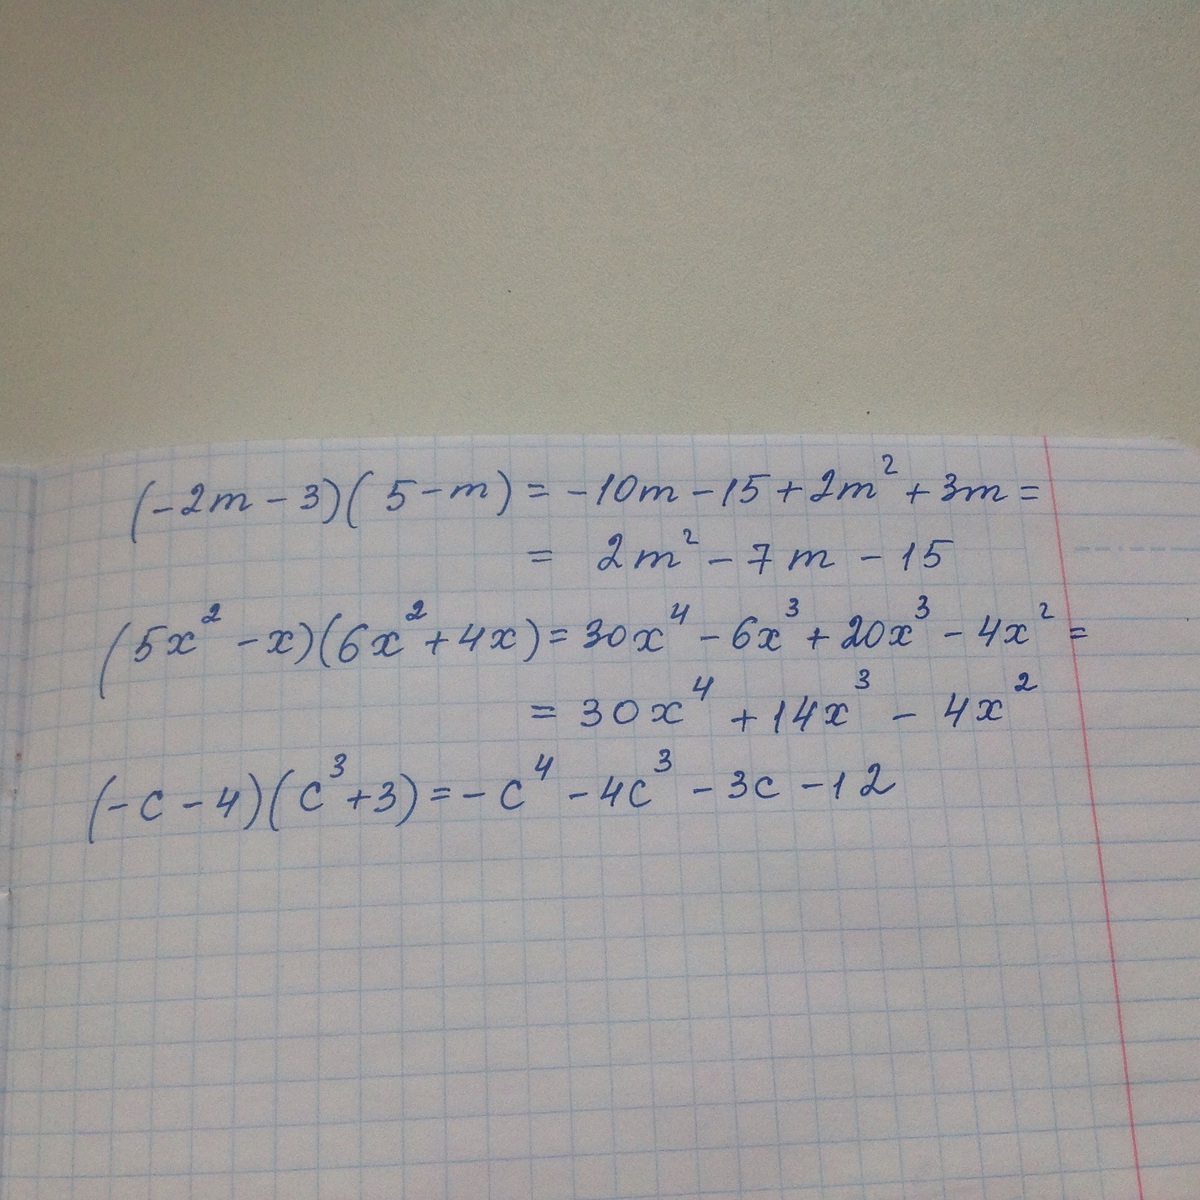 (-2m - 3)(5 - m) = -10m - 15 + 2m² + 3m =
= 2m² - 7m - 15
(5x² - x)(6x² + 4x) = 30x⁴ - 6x³ + 20x³ - 4x² =
= 30x⁴ + 14x³ - 4x²
(-c - 4)(c³ + 3) = -c⁴ - 4c³ - 3c - 12